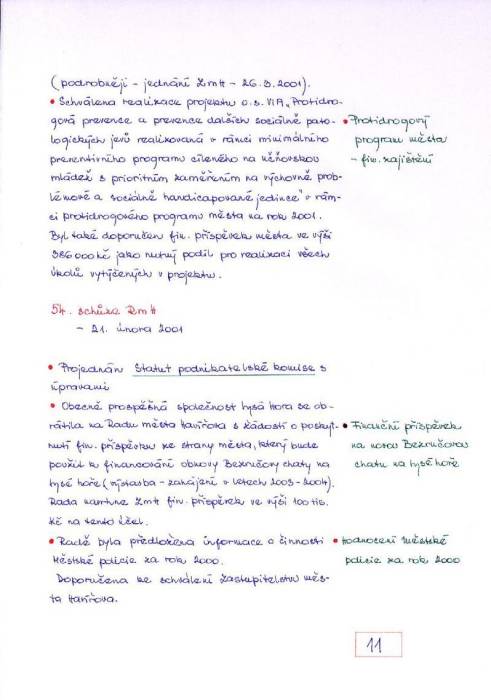 (podrobněji - jednání ZmH - 26.3.2001).
• Schválena realizace projektu o.s. VIA „Protidro-
gová prevence a prevence dalších sociálně pato-
logických jevů realizovaná v rámci minimálního
preventivního programu cíleného na
mládež s prioritním zaměřením na výchovně prob-
lémové a sociálně handicapované jedince“ v rám-
ci protidrogového programu města na rok 2001.
Byl také doporučen fin. příspěvek města ve výši
386 000 Kč jako nutný podíl pro realizaci všech
úkolů vytýčených v projektu.
• Protidrogový
program města
- fin. zajištění
54. schůze RmH
- 21. února 2001
• Projednán Statut podnikatelské komise s
úpravami
• Obecně prospěšná společnost Lysá Hora se ob-
rátila na Radu města Havířova s žádostí o poskyt-
nutí fin. příspěvku ze strany města, který bude
použit k financování obnovy Bezručovy chaty na
Lysé hoře (výstavba - zahájení v letech 2003-2004).
Rada navrhne ZmH fin. příspěvek ve výši 100 tis.
Kč na tento účel.
• Finanční příspěvek
na novou Bezručovu
chatu na Lysé hoře
• Radě byla předložena informace o činnosti
Městské policie za rok 2000.
Doporučena ke schválení Zastupitelstvu měs-
ta Havířova.
• Hodnocení Městské
policie za rok 2000
11